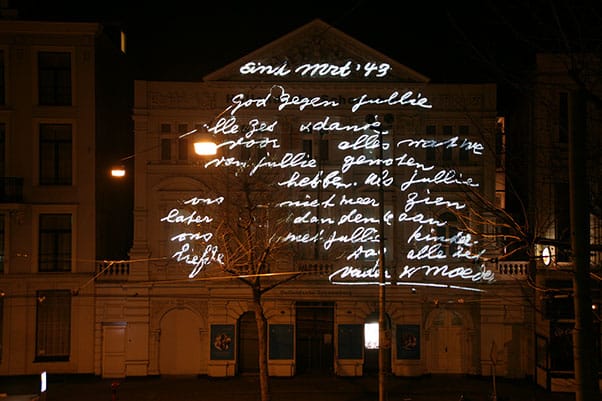 eind Mrt '43
God zegen jullie
alle zes & dank
voor alles wat we
van jullie genoten
hebben. Als jullie
ons niet meer zien
later dan denk aan
ons met jullie kinder
Liefde van alle zes
Vader & Moeder